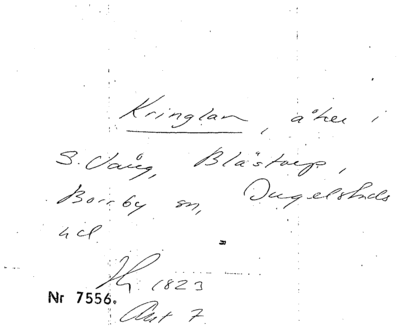 Kringlan, åker i
S. Vång, Blästorp,
Borrby sn, Ingelstads
hd
1823
Nr 7556.
Akt 7